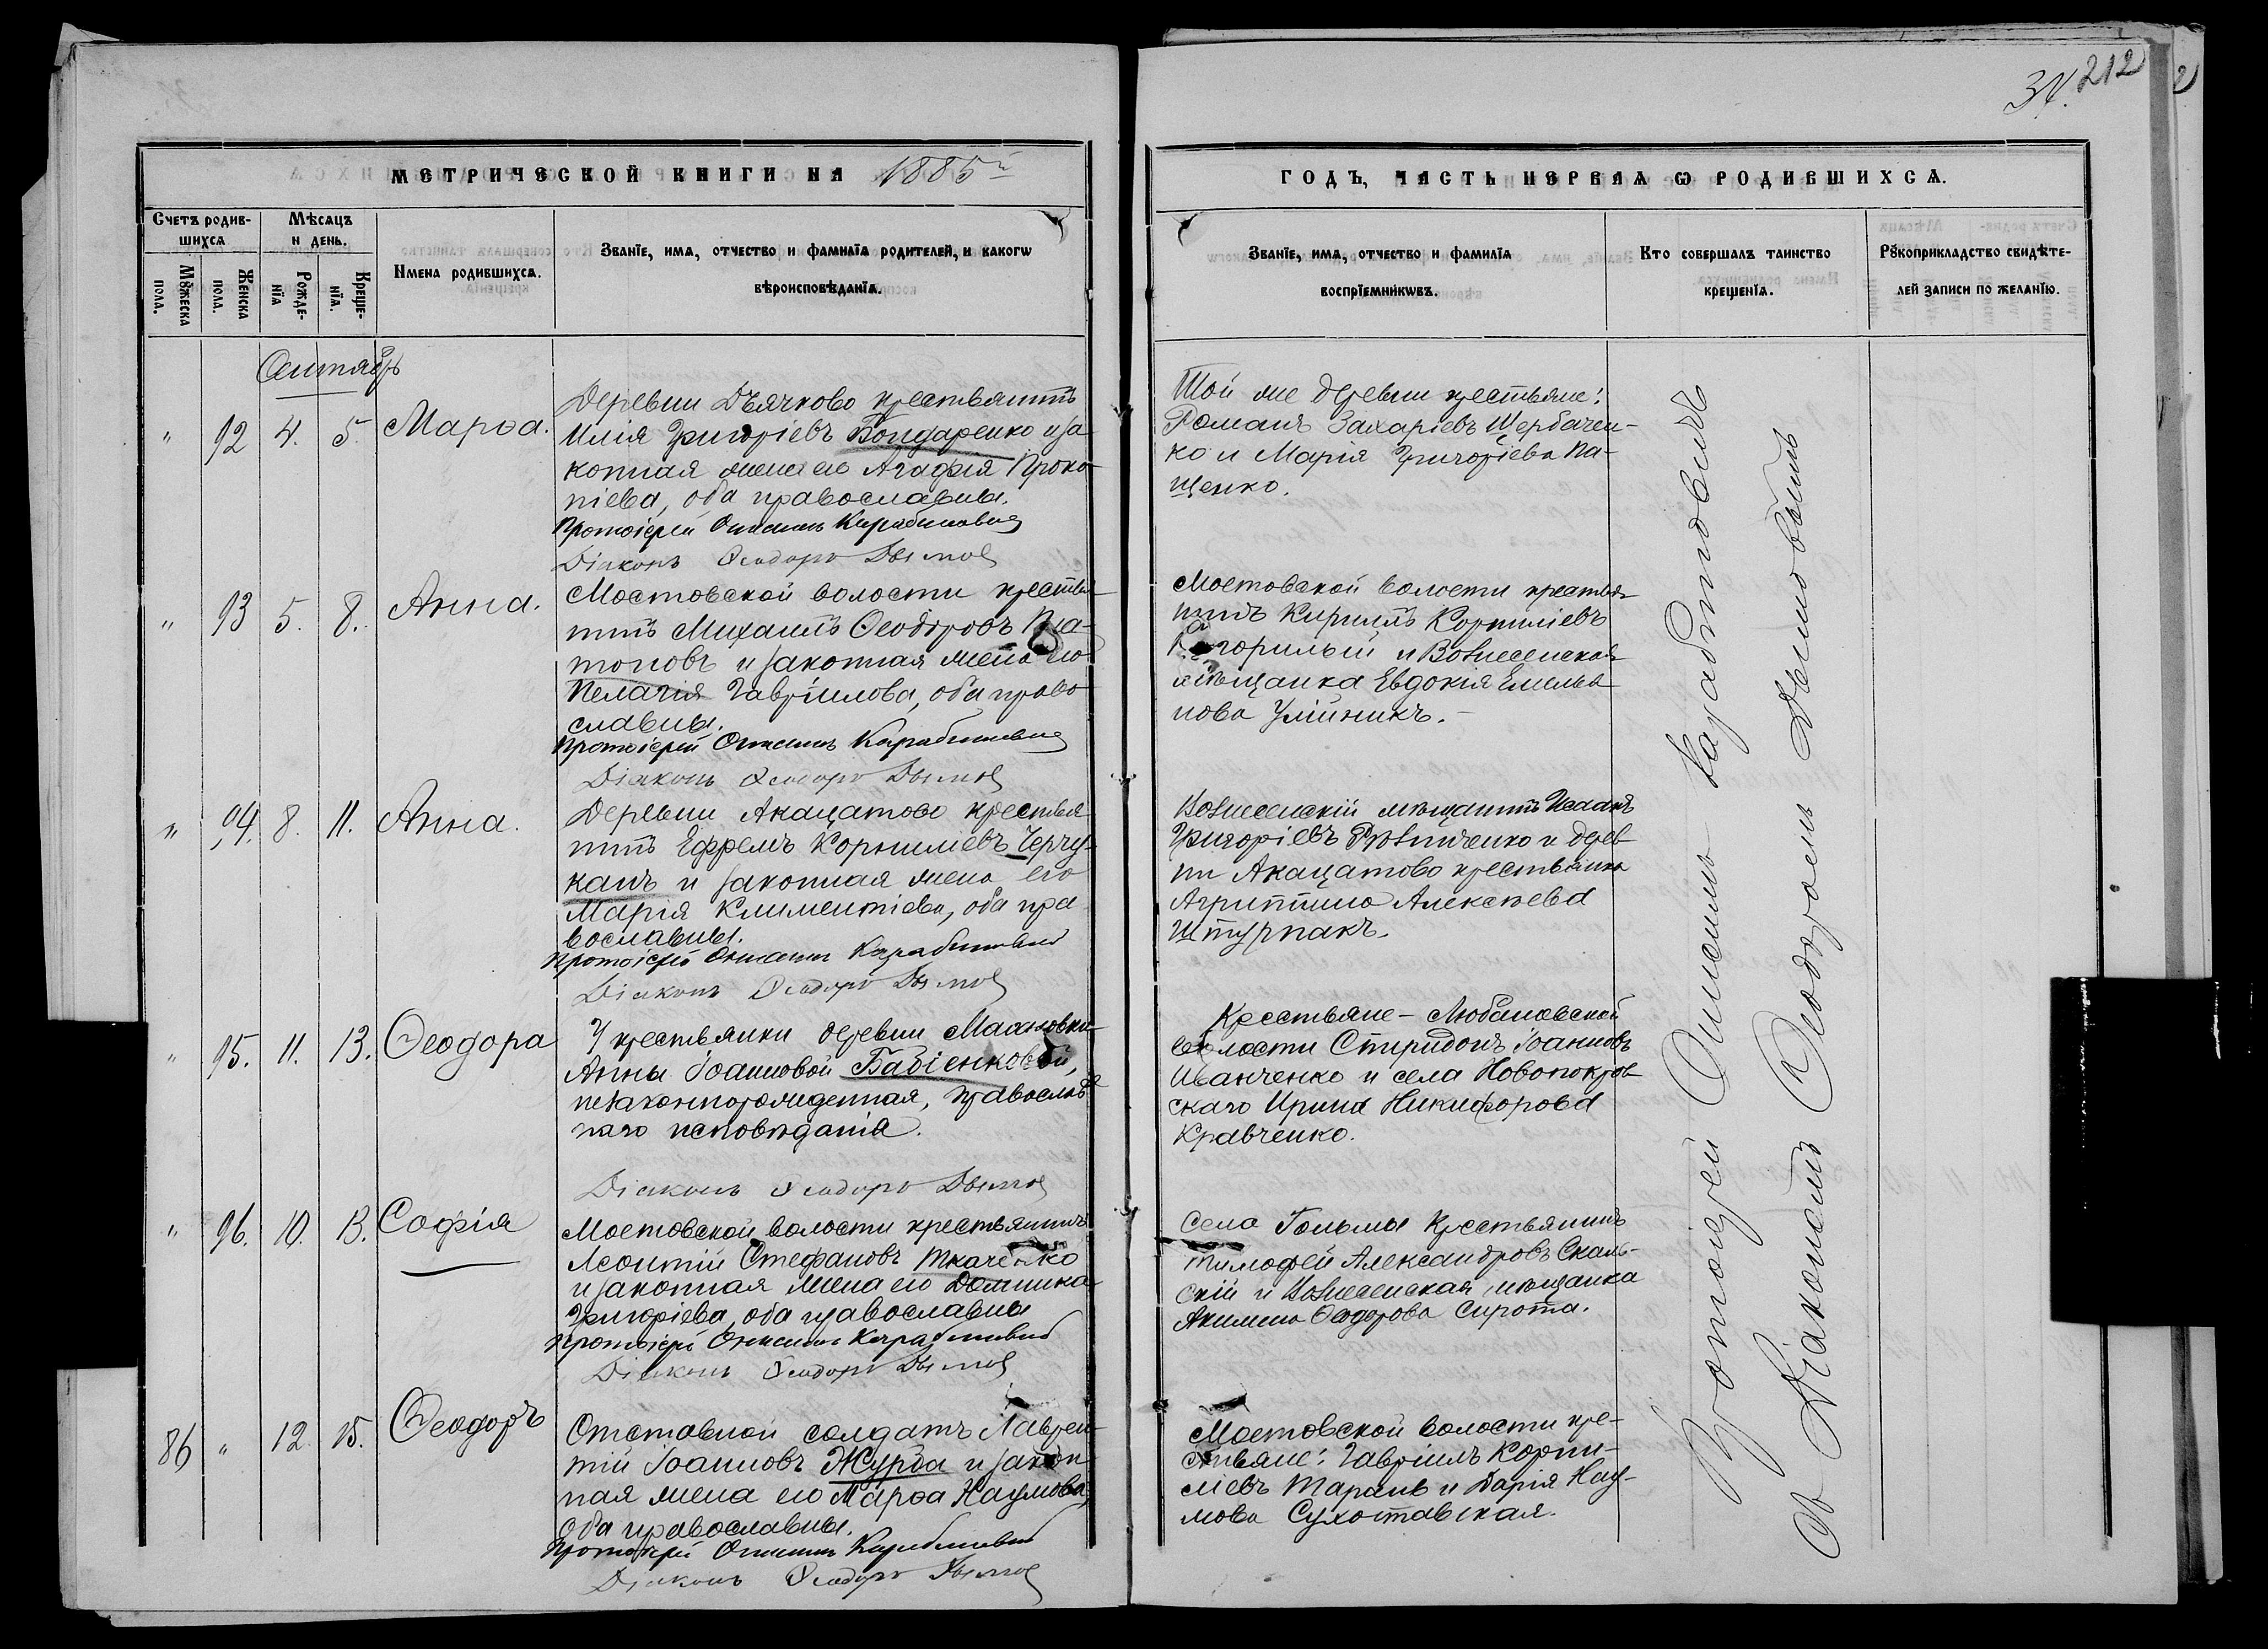 34. 212
МЕТРИЧЕСКОЙ КНИГИ НА 1885й
ГОДЪ, ЧАСТЬ ПЕРВАЯ Ѡ РОДИВШИХСѦ.
Счетъ родив-
шихсѧ
Мѣсѧцъ
и день.
Мꙋжеска
пола.
Женска
пола.
Рожде-
нїѧ
Креще-
нїѧ.
Имена родившихсѧ.
Званїе, имѧ, отчество и фамилїѧ родителей, и какогѡ
вѣроисповѣданїѧ.
Званїе, имѧ, отчество и фамилїѧ
воспрїемникѡвъ.
Кто совершалъ таинство
крещенїѧ.
Рꙋкоприкладство свидѣте-
лей записи по желанїю.
Сентябрь
" 92 4. 5. Марѳа.
Деревни Дьячково крестьянинъ
Илія Григоріевъ Бондаренко и за
конная жена его Агафія Проко-
піева, оба православны.
Протоіерей Онисимъ Карабиновичъ
Діаконъ Ѳеодоръ Дымов
Той же деревни крестьяне:
Романъ Захаріевъ Щербачен-
ко и Марія Григоріева Па-
щенко.
" 93 5. 8. Анна.
Мостовской волости крестья-
нинъ Михаилъ Ѳеодоровъ Пла-
тоновъ и законная жена его
Пелагія Гавріилова, оба право
славны.
Протоіерей Онисимъ Карабиновичъ
Діаконъ Ѳеодоръ Дымов
Мостовской волости крестья-
нинъ Кириллъ Корниліевъ
и Вознесенская
мѣщанка Евдокія Емелья
нова
" 94. 8. 11. Анна.
Деревни Акацатово крестья
нинъ Ефремъ Корниліевъ Черчу-
канъ и законная жена его
Марія Климентіева, оба пра
вославны.
Протоіерей Онисимъ Карабиновичъ
Діаконъ Ѳеодоръ Дымов
Вознесенскій мѣщанинъ Исаакъ
Григоріевъ Рѣзниченко и дерев
ни Акацатово крестьянка
Агриппина Алексѣева
Штурпакъ.
" 95. 11. 13. Ѳеодора
У крестьянки деревни
Анны Іоанновой Бабіенковой,
незаконнорожденная, православ
наго исповѣданія.
Діаконъ Ѳеодоръ Дымов
Крестьяне - Любановской
волости Спиридонъ Іоанновъ
Иванченко и села Новопокров
скаго Ирина Никифорова
Кравченко.
" 96. 10. 13. Софія
Мостовской волости крестьянинъ
Леонтій Стефановъ Ткаченко
и законная жена его Домника
Григоріева, оба православны
Протоіерей Онисимъ Карабиновичъ
Діаконъ Ѳеодоръ Дымов
Села Гольмы крестьянинъ
Тимофей Александровъ Скаль-
скій и Вознесенская мѣщанка
Акилина Ѳеодорова Сирота.
86 " 12. 15. Ѳеодоръ
Отставной солдатъ Лаврен-
тій Іоанновъ Журба и закон
ная жена его Марѳа Наумова,
оба православны.
Протоіерей Онисимъ Карабиновичъ
Діаконъ Ѳеодоръ Дымов
Мостовской волости кре-
стьяне: Гавріилъ Корни-
ліевъ Таранъ и Дарія Нау-
мова Сухоставская.
Протоіерей Онисимъ Карабиновичъ
съ Діакономъ Ѳеодоромъ Дымовымъ